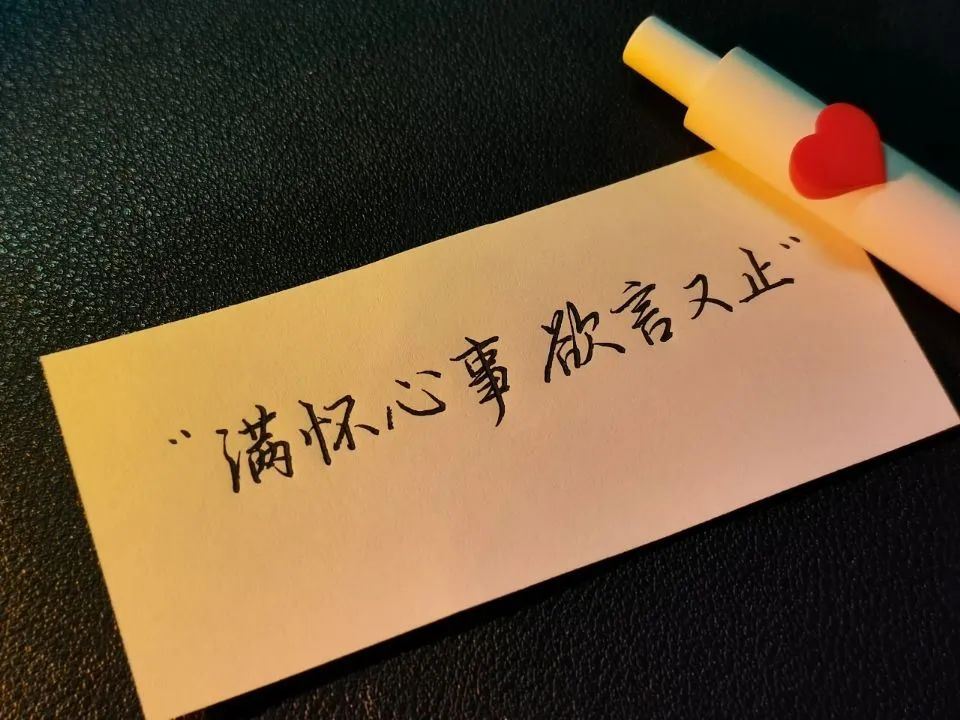 “满怀心事 欲言又止”